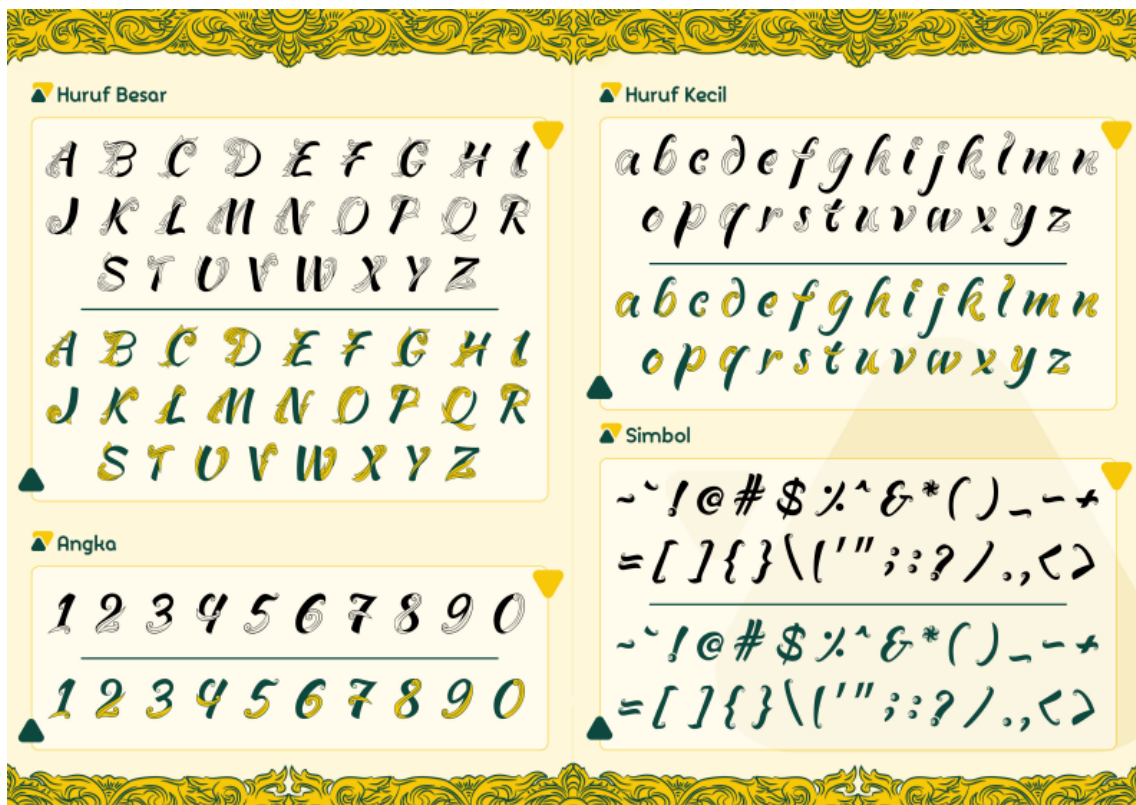 Huruf Besar
A B C D E F G H I
J K L M N O P Q R
S T U V W X Y Z
A B C D E F G H I
J K L M N O P Q R
S T U V W X Y Z
Angka
1 2 3 4 5 6 7 8 9 0
1 2 3 4 5 6 7 8 9 0
Huruf Kecil
a b c d e f g h i j k l m n
o p q r s t u v w x y z
a b c d e f g h i j k l m n
o p q r s t u v w x y z
Simbol
~ ` ! @ # $ % ^ & * ( ) _ - +
= [ ] { } \ | ' " ; : ? / . , < >
~ ` ! @ # $ % ^ & * ( ) _ - +
= [ ] { } \ | ' " ; : ? / . , < >